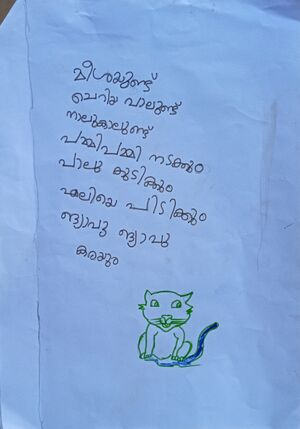 മീശയുണ്ട്
ചെറിയ വാലുണ്ട്
നാലുകാലുണ്ട്
പമ്മിപമ്മി നടക്കും
പാലു കുടിക്കും
എലിയെ പിടിക്കും
ങ്യാവു ങ്യാവു
കരയും